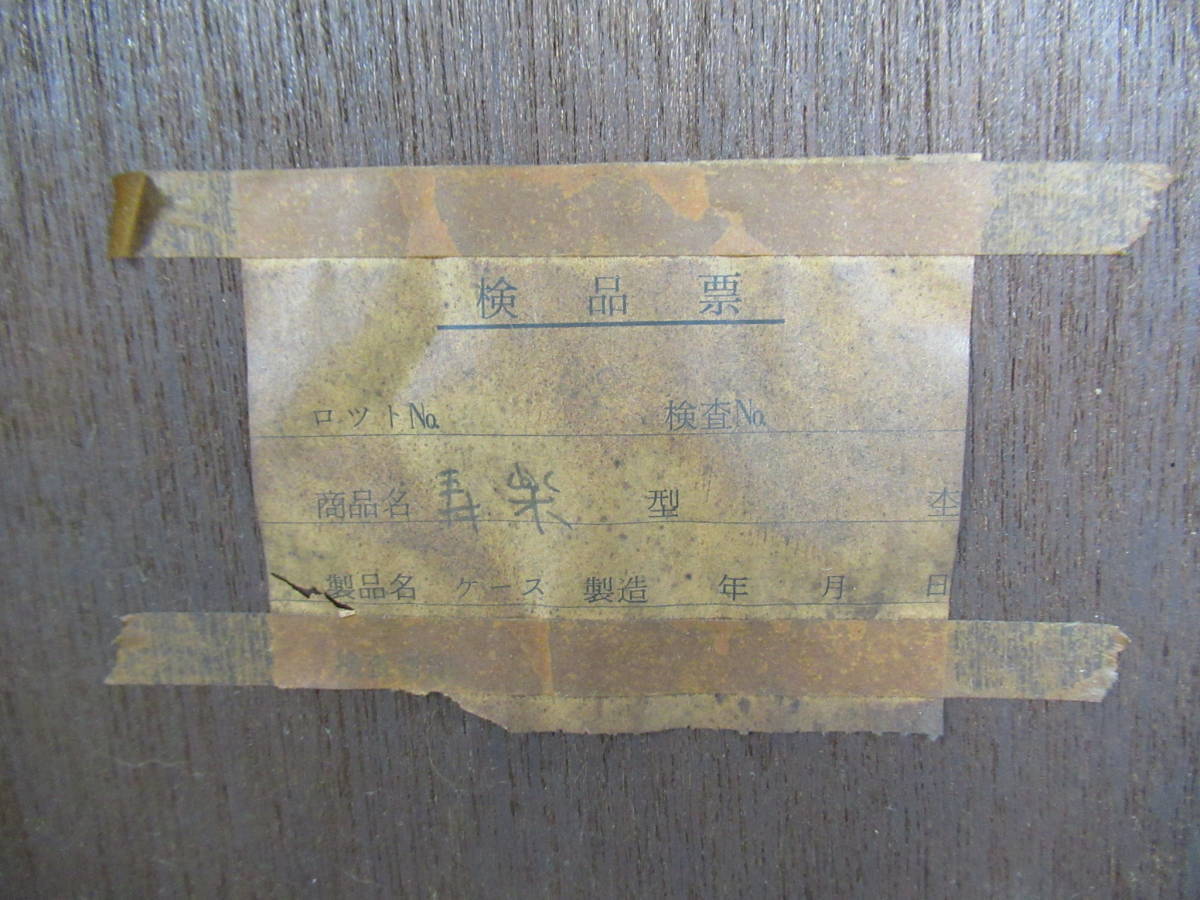 検品票
ロツト№ 検査№
商品名 寿楽 型 杢
製品名 ケース 製造 年 月 日